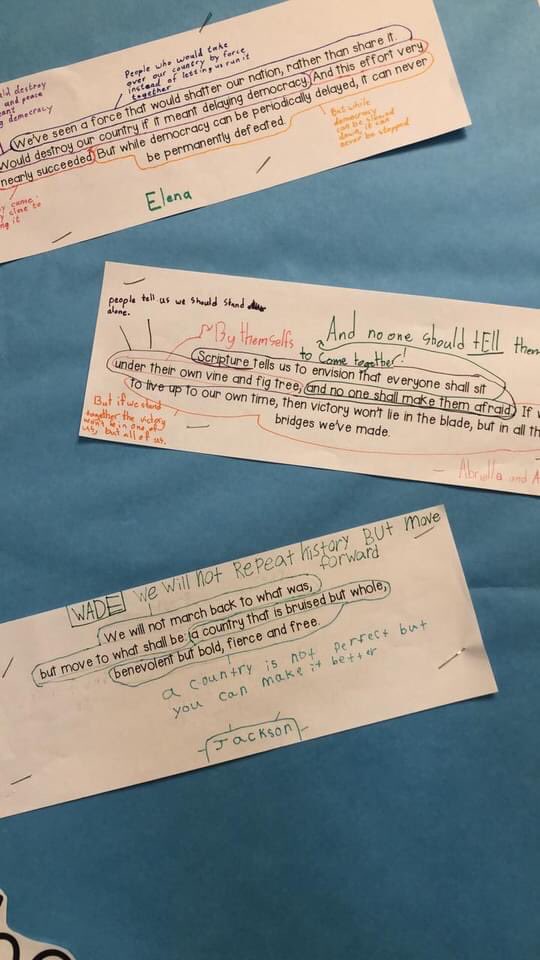 destroy
and peace
democracy
People who would take
over our country by force
instead of letting us run it
together
We've seen a force that would shatter our nation, rather than share it.
Would destroy our country if it meant delaying democracy. And this effort very
nearly succeeded. But while democracy can be periodically delayed, it can never
be permanently defeated.
But while
democracy
can be slowed
down, it can
never be stopped
came
close to
it
Elena
people tell us we should stand
alone.
By themselves
And no one should tEll them
to come together!
Scripture tells us to envision that everyone shall sit
under their own vine and fig tree, and no one shall make them afraid. If
to live up to our own time, then victory won't lie in the blade, but in all th
bridges we've made.
But if we stand
together the victory
won't be in one of
us, but all of us.
- Abriella and A
WADE We Will not Repeat history But move
forward
We will not march back to what was,
but move to what shall be: a country that is bruised but whole,
benevolent but bold, fierce and free.
a country is not perfect but
you can make it better
Jackson